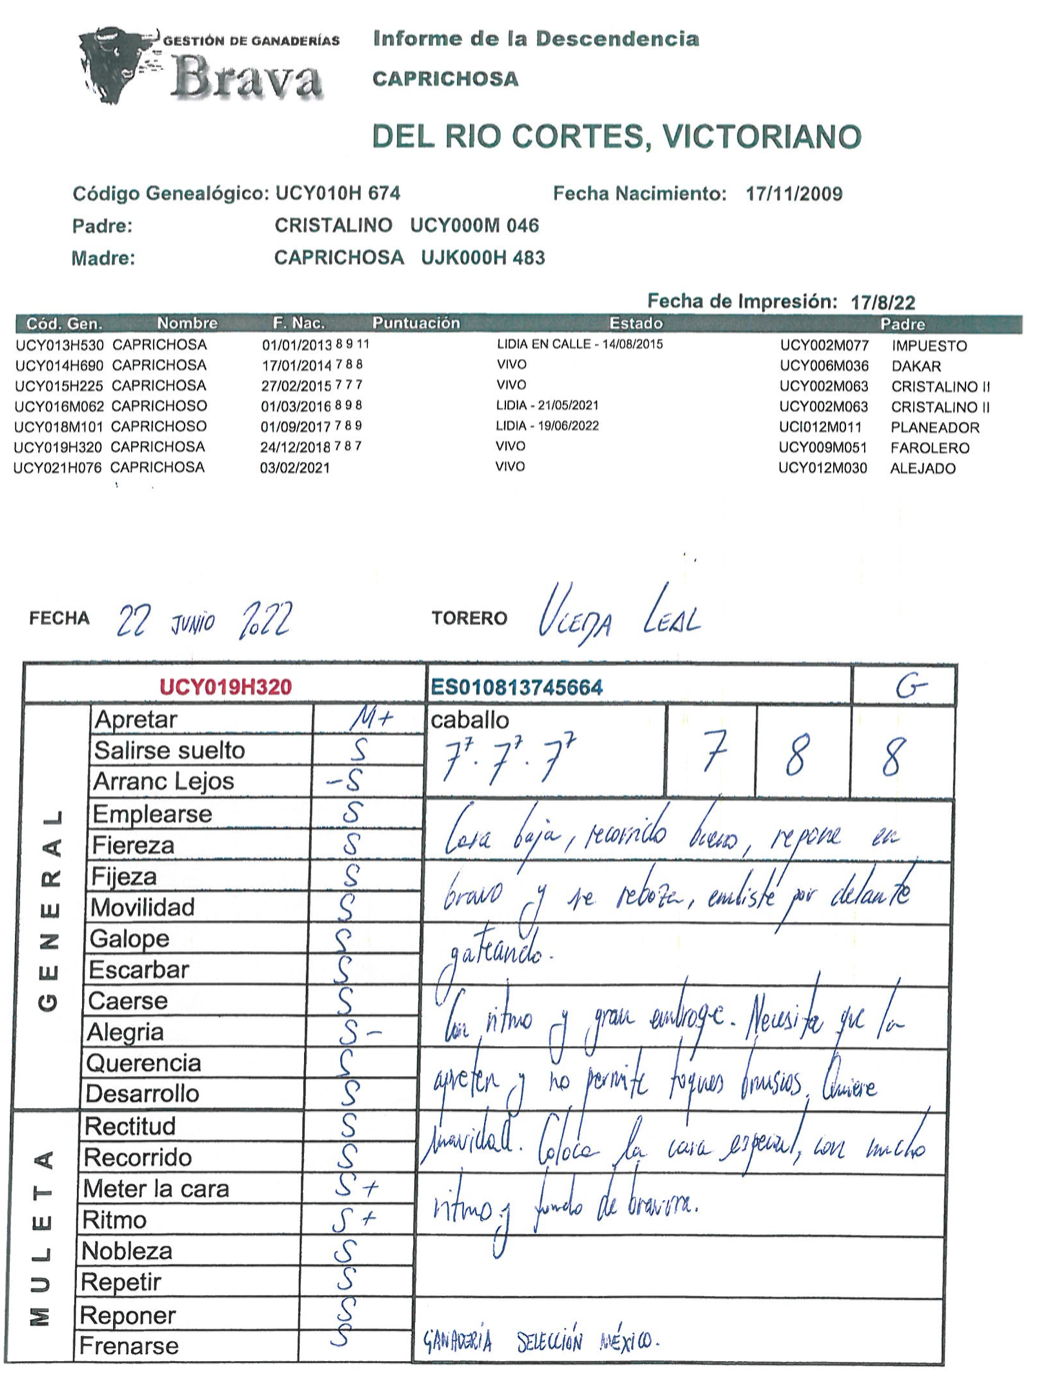 GESTIÓN DE GANADERÍAS
Brava
Informe de la Descendencia
CAPRICHOSA
DEL RIO CORTES, VICTORIANO
Código Genealógico: UCY010H 674 Fecha Nacimiento: 17/11/2009
Padre: CRISTALINO UCY000M 046
Madre: CAPRICHOSA UJK000H 483
Fecha de Impresión: 17/8/22
Cód. Gen. Nombre F. Nac. Puntuación Estado Padre
UCY013H530 CAPRICHOSA 01/01/2013 8 9 11 LIDIA EN CALLE - 14/08/2015 UCY002M077 IMPUESTO
UCY014H690 CAPRICHOSA 17/01/2014 7 8 8 VIVO UCY006M036 DAKAR
UCY015H225 CAPRICHOSA 27/02/2015 7 7 7 VIVO UCY002M063 CRISTALINO II
UCY016M062 CAPRICHOSO 01/03/2016 8 9 8 LIDIA - 21/05/2021 UCY002M063 CRISTALINO II
UCY018M101 CAPRICHOSO 01/09/2017 7 8 9 LIDIA - 19/06/2022 UCI012M011 PLANEADOR
UCY019H320 CAPRICHOSA 24/12/2018 7 8 7 VIVO UCY009M051 FAROLERO
UCY021H076 CAPRICHOSA 03/02/2021 VIVO UCY012M030 ALEJADO
FECHA 22 JUNIO 2022 TORERO UCEDA LEAL
UCY019H320 ES010813745664 G
GENERAL
Apretar M+
Salirse suelto S
Arranc Lejos -S
Emplearse S
Fiereza S
Fijeza S
Movilidad S
Galope S
Escarbar S
Caerse S
Alegria S-
Querencia S
Desarrollo S
MULETA
Rectitud S
Recorrido S
Meter la cara S+
Ritmo S+
Nobleza S
Repetir S
Reponer S
Frenarse S
caballo
7⁷. 7⁷. 7⁷ 7 8 8
Cara baja, recorrido bueno, repone en
bravo y se reboza, embiste por delante
gateando.
Con ritmo y gran embroque. Necesita que la
apreten y no permite toques bruscos. Quiere
suavidad. Coloca la cara especial, con mucho
ritmo y fondo de bravura.
GANADERÍA SELECCIÓN MÉXICO.